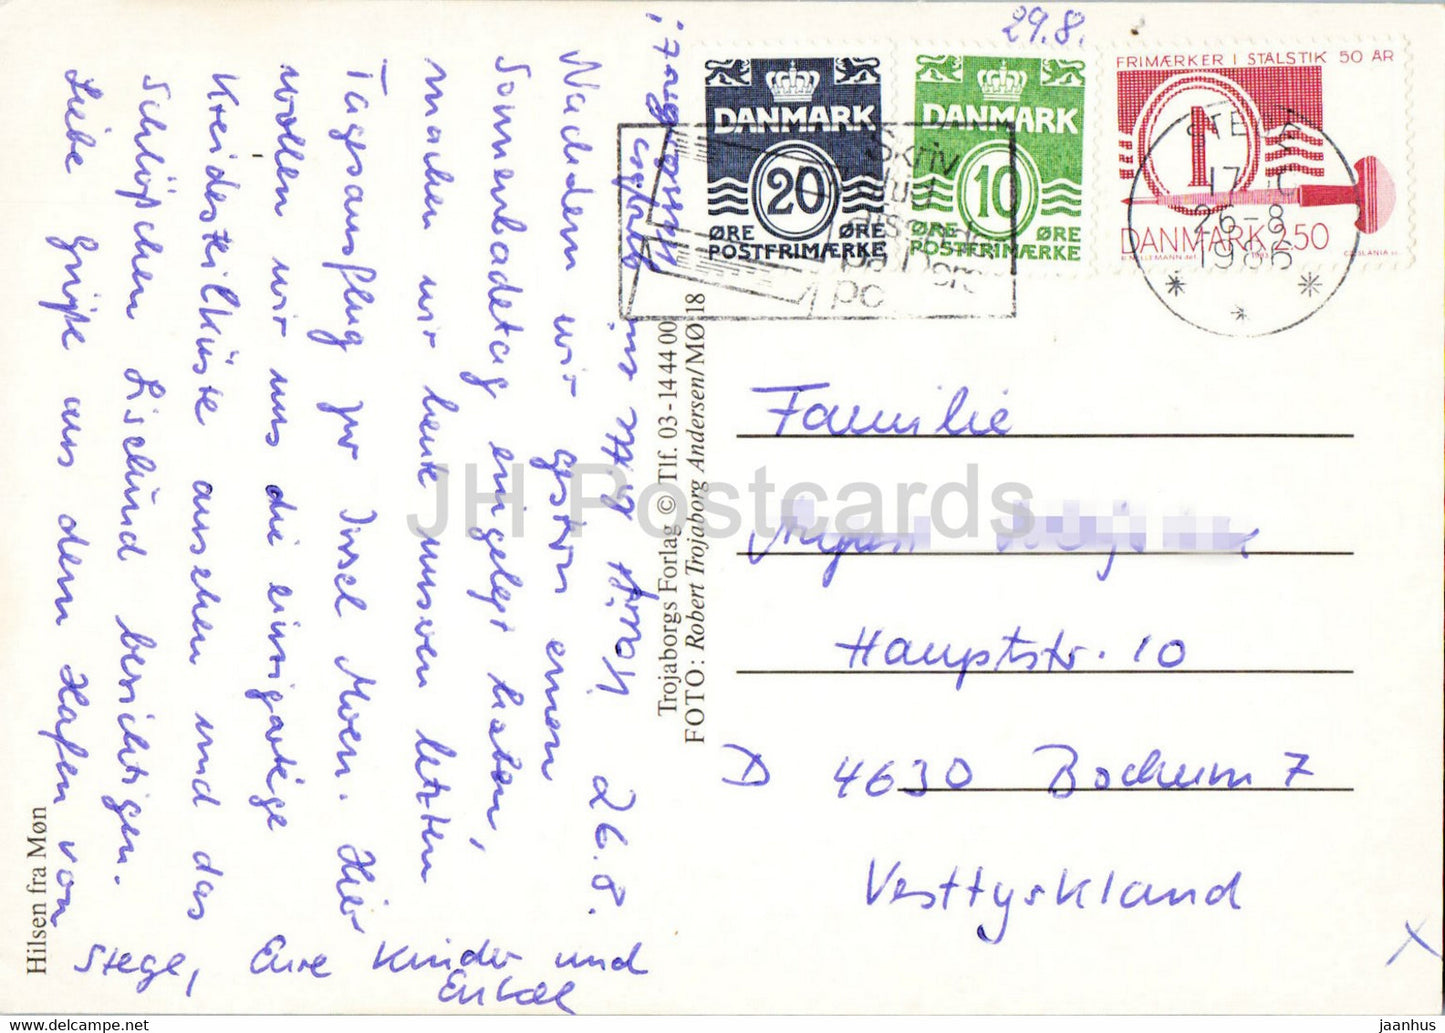 29.8.
DANMARK
20
ØRE ØRE
POSTFRIMÆRKE
DANMARK
10
ØRE ØRE
POSTFRIMÆRKE
FRIMÆRKER I STÅLSTIK 50 ÅR
1
DANMARK 250
STEGE
17
26-8
1986
Skriv
på
po
26.8.
Nachdem wir gestern einen
Sonnenbadetag eingelegt hatten,
machen wir heute unseren letzten
Tagesausflug zur Insel Moen. Hier
wollen wir uns die einzigartige
Kreidesteilküste ansehen und das
Schlößchen Liselund besichtigen.
Liebe Grüße aus dem Hafen von
Stege, Eure Kinder und
Enkel
Hilsen fra Møn
Trojaborgs Forlag © Tlf. 03-14 44 00
FOTO: Robert Trojaborg Andersen/MØ 18
Familie
Hauptstr. 10
D 4630 Bochum 7
Vesttyskland
x
JH Postcards
www.delcampe.net
jaanhus